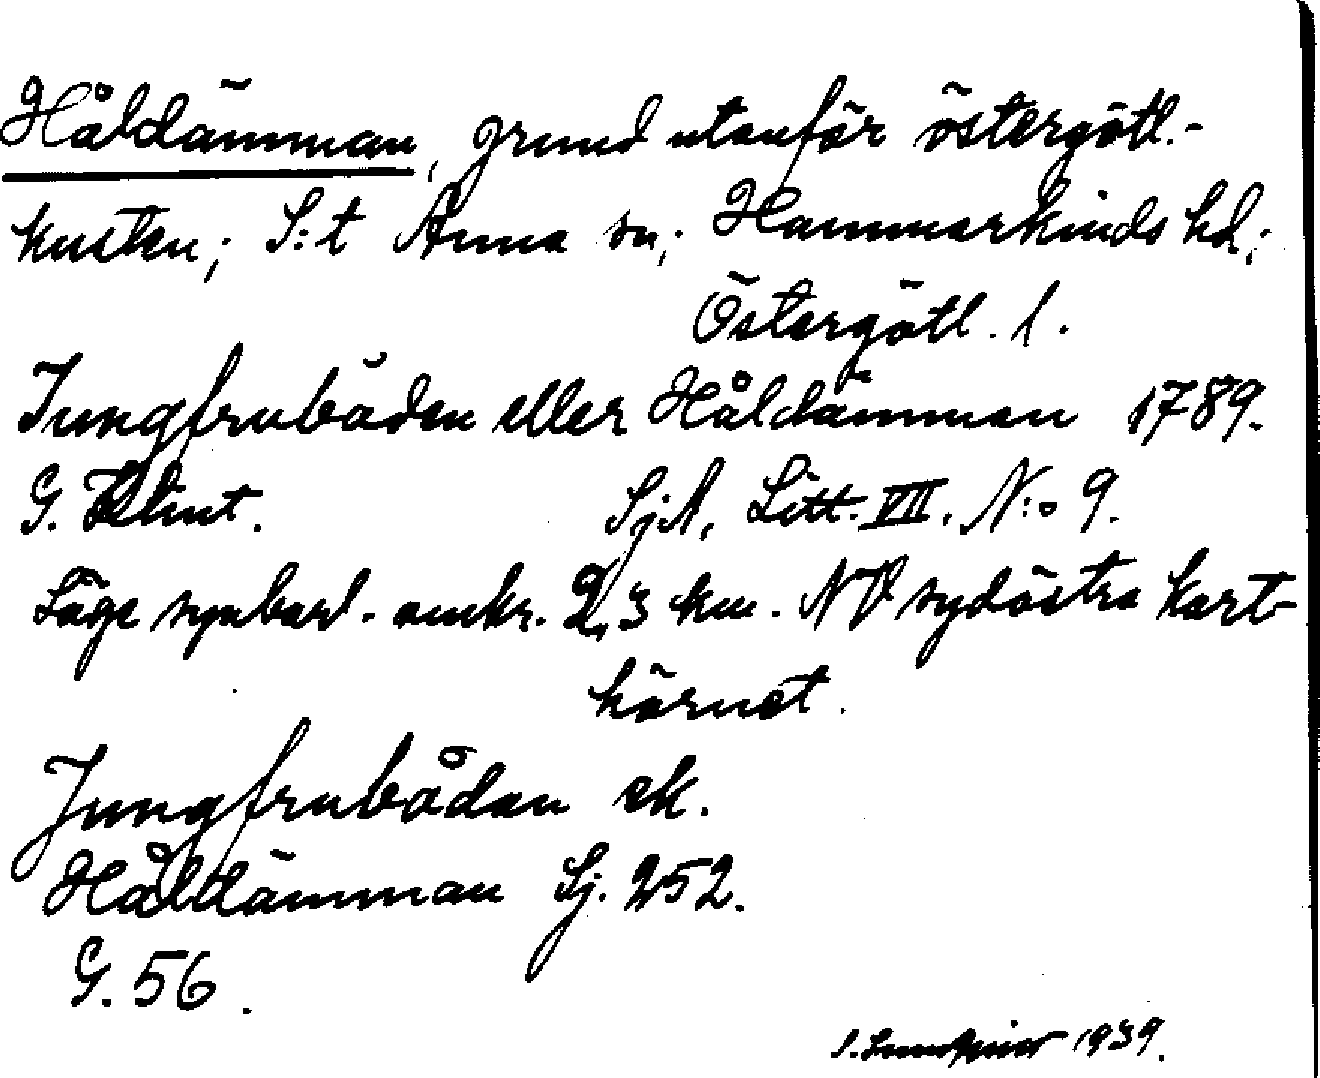 Håldämman, grund utanför östergötl.-
kusten; S:t Anna sn; Hammarkinds hd;
Östergötl. l.
Jungfrubåden eller Håldämman 1789.
G. Klint. SjA, Litt. VII. N:o 9.
Läge synbarl. omkr. 2,3 km. NV sydöstra kart-
hörnet.
Jungfrubådan ek.
Håldämman Sj. 252.
G. 56.
1939.